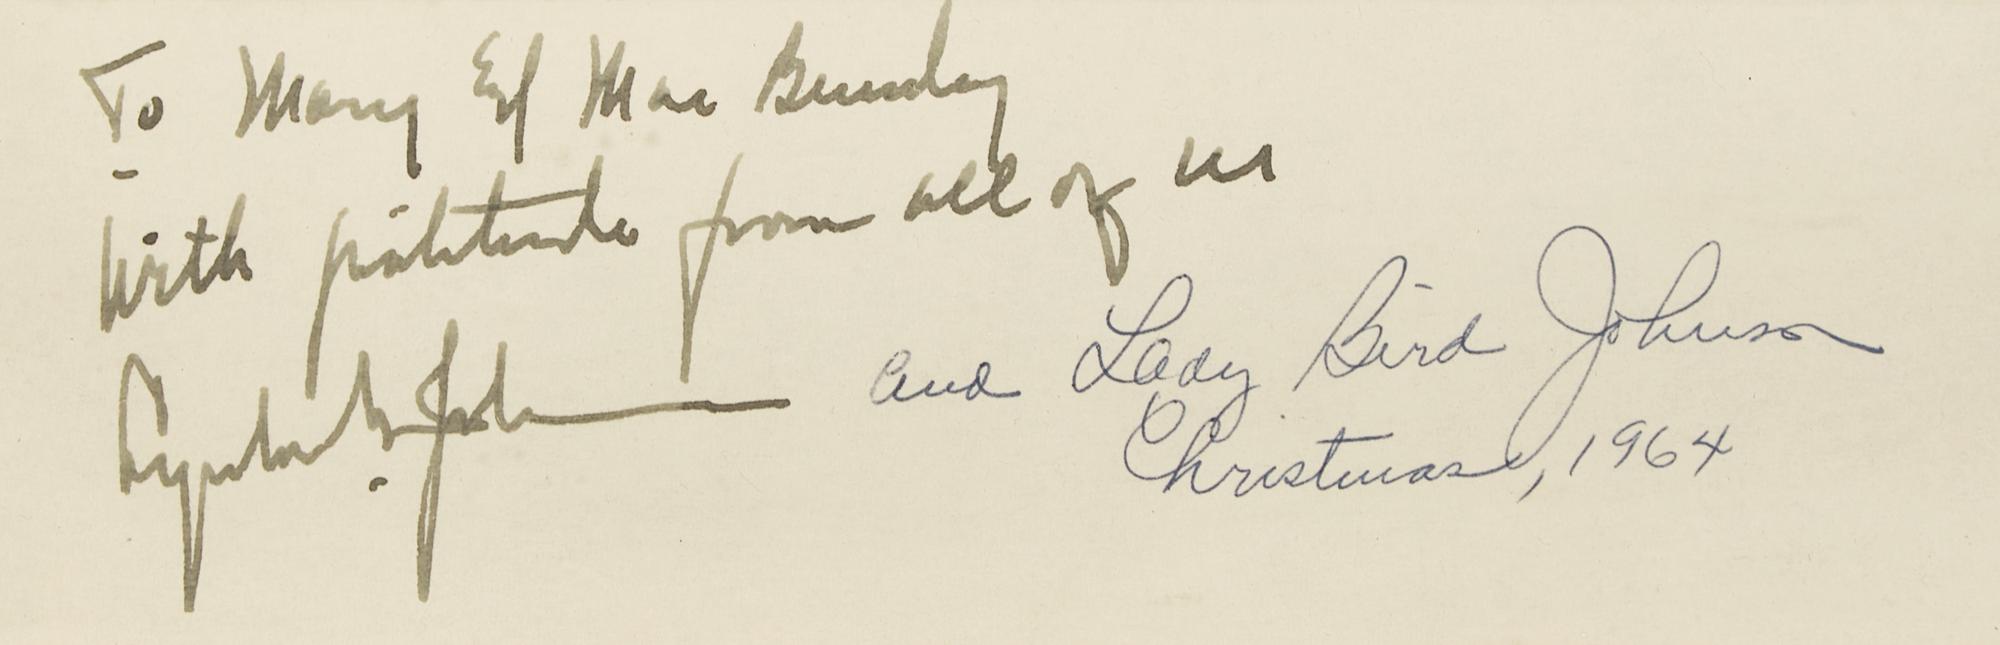 To Mary & Mac Bundy
With gratitude from all of us
Lyndon B. Johnson and Lady Bird Johnson
Christmas, 1964